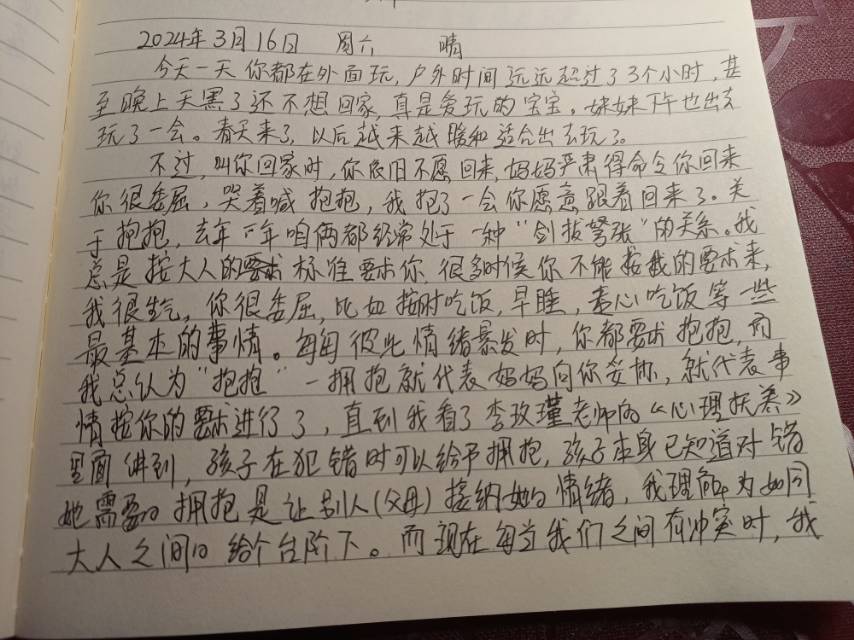 2024年3月16日 周六 晴
今天一天你都在外面玩,户外时间远远超过了3个小时,甚
至晚上天黑了还不想回家,真是爱玩的宝宝。妹妹下午也出去
玩了一会。春天来了,以后越来越暖和适合出去玩了。
不过,叫你回家时,你依旧不愿回来,妈妈严肃得命令你回来
你很委屈,哭着喊抱抱,我抱了一会你愿意跟着回来了。关
于抱抱,去年下年咱俩都经常处于一种“剑拔弩张”的关系。我
总是按大人的要求标准要求你,很多时候你不能按我的要求来,
我很生气,你很委屈,比如按时吃饭,早睡,专心吃饭等一些
最基本的事情。每每彼此情绪暴发时,你都要求抱抱,而
我总认为“抱抱“一拥抱就代表妈妈向你妥协,就代表事
情按你的要求进行了,直到我看了李玫瑾老师的《心理抚养》
里面讲到,孩子在犯错时可以给予拥抱,孩子本身已知道对错
她需要的拥抱是让别人(父母)接纳她的情绪,我理解为如同
大人之间的给个台阶下。而现在每当我们之间有冲突时,我